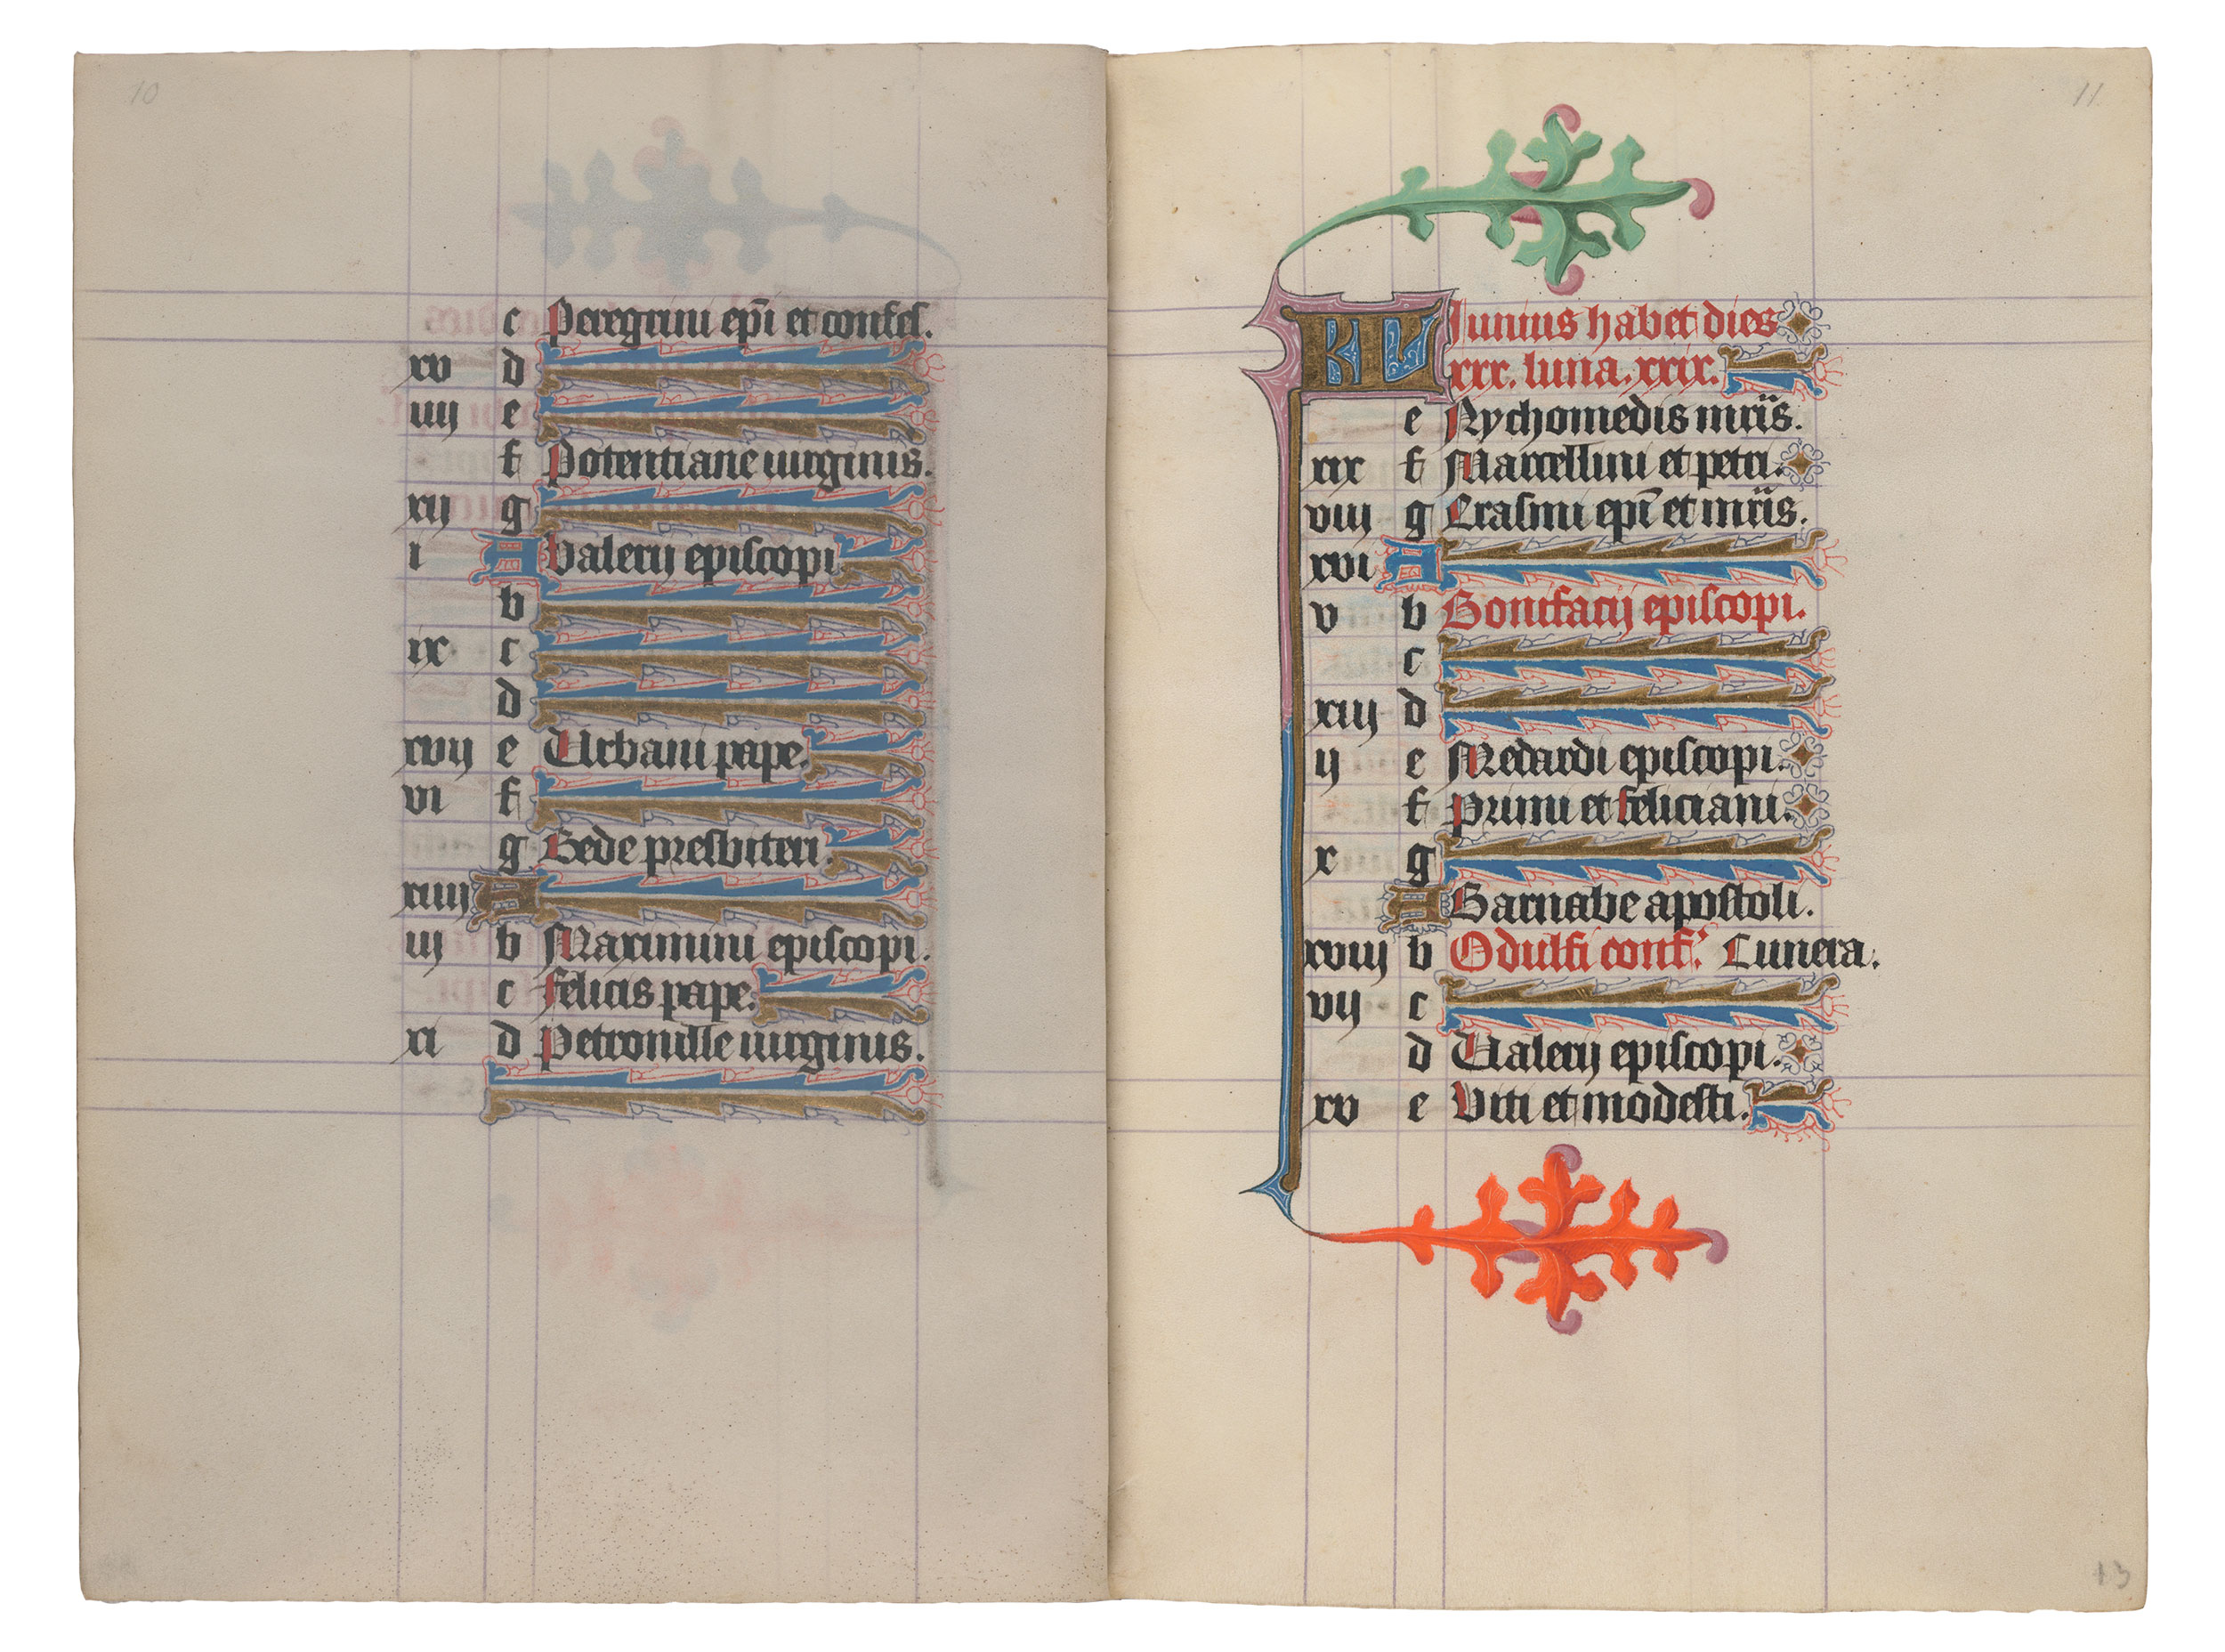 10
c Peregrini ep̄i et confes.
xv d
iiij e
f Potentiane uirginis.
xij g
i A Valerij episcopi
b
ix c
d
xvij e Urbani pape.
vi f
g Bede presbiteri.
xiiij A
iij b Maximini episcopi.
c Felicis pape.
xi d Petronille uirginis.
11
KL Junius habet dies
xxx. luna. xxix.
e Nychomedis mr̄is.
xix f Marcellini et petri.
viij g Erasmi ep̄i et mr̄is.
xvi A
v b Bonifacij episcopi.
c
xiij d
ij e Medardi episcopi.
f Primi et feliciani.
x g
A Barnabe apostoli.
xviij b Odulfi conf. Cunera.
vij c
d Valerij episcopi.
xv e Viti et modesti.
13